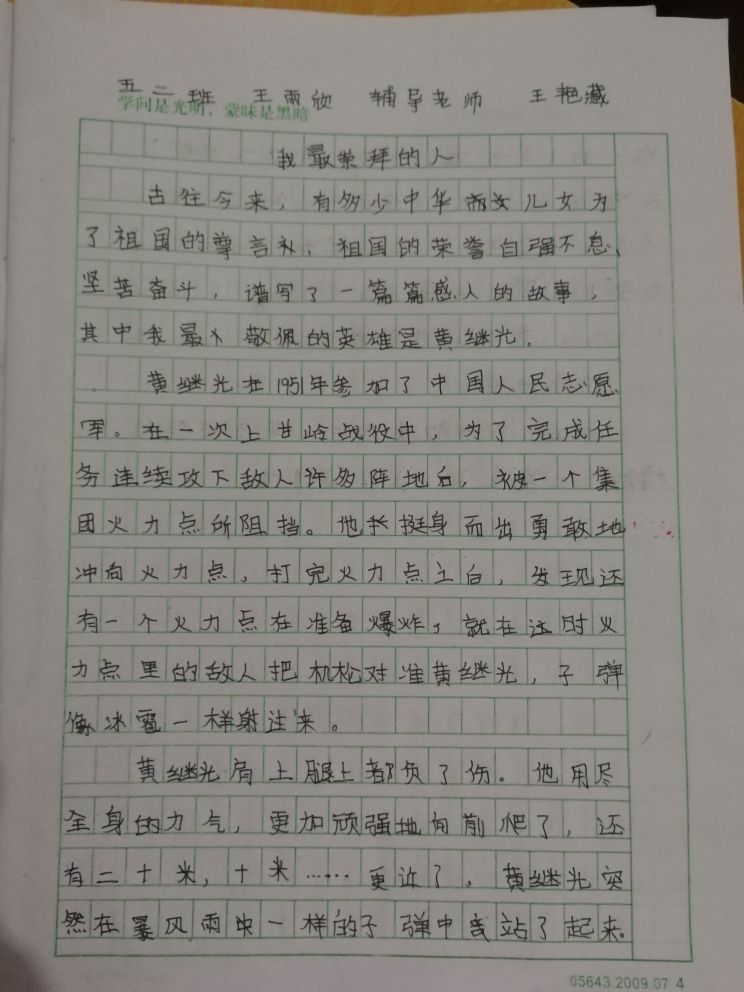 五二班 王雨欣 辅导老师 王艳藏
学问是光明，蒙昧是黑暗
我最崇拜的人
古往今来，有多少中华儿女为
了祖国的尊言礼，祖国的荣誉自强不息、
坚苦奋斗，谱写了一篇篇感人的故事，
其中我最敬佩的英雄是黄继光.
黄继光在1951年参加了中国人民志愿
军。在一次上甘岭战役中，为了完成任
务连续攻下敌人许多阵地后，被一个集
团火力点所阻挡。他挺身而出勇敢地
冲向火力点，打完火力点上白，发现还
有一个火力点在准备爆炸，就在这时火
力点里的敌人把机松对准黄继光，子弹
像冰雹一样射过来。
黄继光肩上腿上都负了伤。他用尽
全身的力气，更加顽强地向前爬了，还
有二十米，十米……更近了，黄继光突
然在暴风雨中一样的子弹中站了起来。
05643.2009.07 4